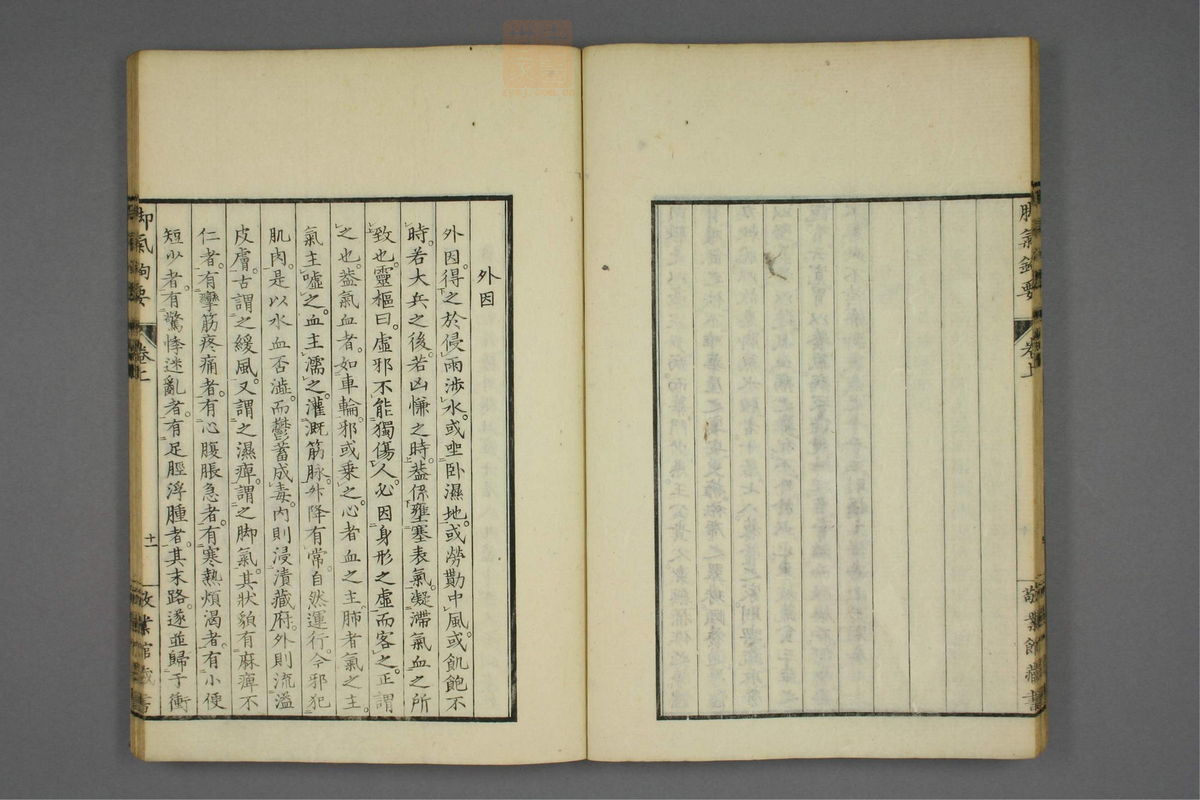 脚氣鉤要
卷上
敬業館藏書
外因
外因。得之於侵雨涉水。或坐卧濕地。或勞勩中風。或飢飽不
時。若大兵之後。若凶慊之時。葢係壅塞表氣。凝滯氣血之所
致也。靈樞曰。虛邪不能獨傷人。必因身形之虛。而客之。正謂
之也。葢氣血者。如車輪。邪或乘之。心者血之主。肺者氣之主。
氣主噓之。血主濡之。灌溉筋脉。升降有常。自然運行。今邪犯
肌肉。是以水血否澁。而鬱蓄成毒。內則浸漬藏府。外則流溢
皮膚。古謂之緩風。又謂之濕痺。謂之脚氣。其狀貌有麻痺不
仁者。有攣筋疼痛者。有心腹脹急者。有寒熱煩渴者。有小便
短少者。有驚悸迷亂者。有足脛浮腫者。其末路遂並歸于衝
脚氣鉤要
卷上
十一
敬業館藏書